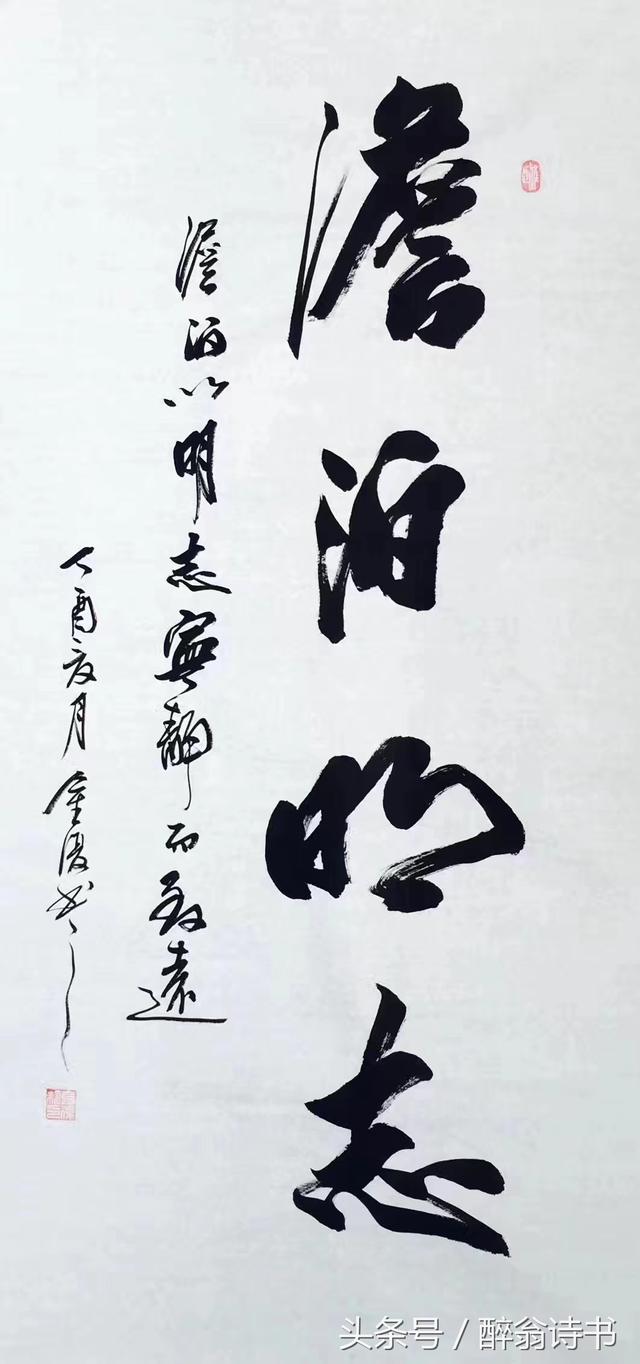 澹泊明志
澹泊以明志寧靜而致遠
丁酉亥月金溪书
头条号 / 醉翁诗书